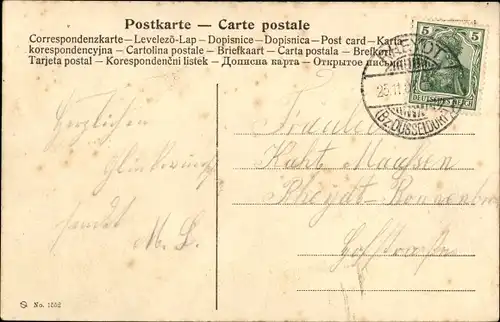 Postkarte — Carte postale
Correspondenzkarte — Levelező-Lap — Dopisnice — Dopisnica — Post card — Karta
korespondencyjna — Cartolina postale — Briefkaart — Carta postala — Brefkort
Tarjeta postal — Korespondenčni listek — Дописна карта — Открытое письмо
5 5
DEUTSCHES REICH
RHEYDT
25.11.
(Bz. DÜSSELDORF)
Herzlichen
Glückwunsch
sendet
M. L.
Fräulein
Maassen
Rheydt
No. 1552